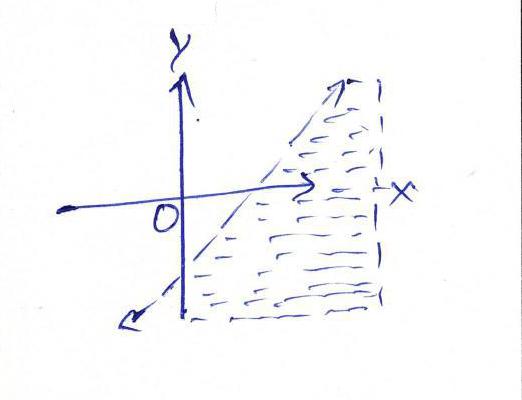 Y
O
X